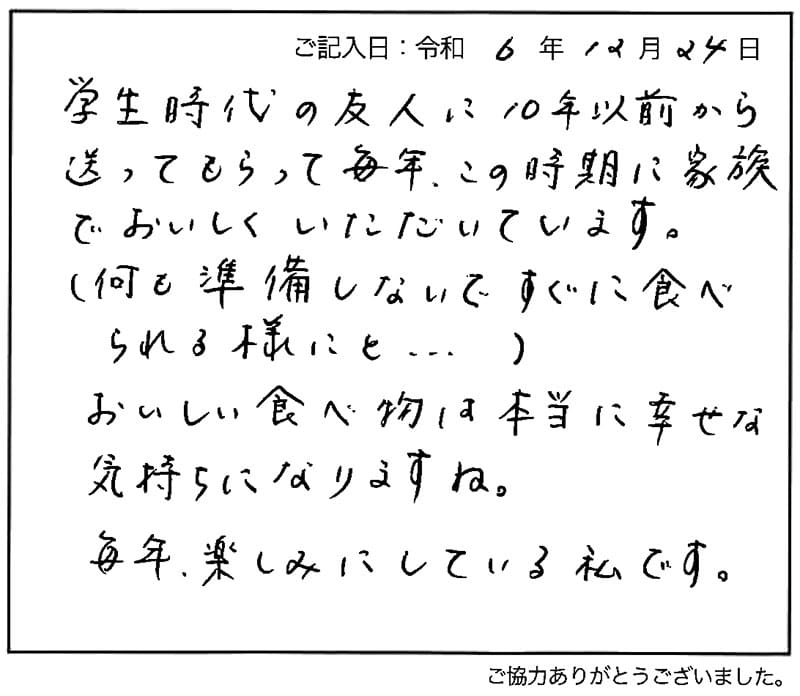 ご記入日：令和 6 年 12 月 24 日
学生時代の友人に10年以前から
送ってもらって毎年、この時期に家族
でおいしくいただいています。
(何も準備しないですぐに食べ
られる様にと… )
おいしい食べ物は本当に幸せな
気持ちになりますね。
毎年、楽しみにしている私です。
ご協力ありがとうございました。